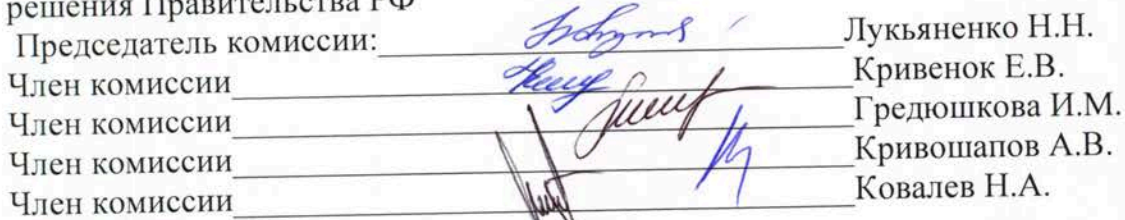 решения Правительства РФ
Председатель комиссии: Лукьяненко Н.Н.
Член комиссии Кривенок Е.В.
Член комиссии Гредюшкова И.М.
Член комиссии Кривошапов А.В.
Член комиссии Ковалев Н.А.